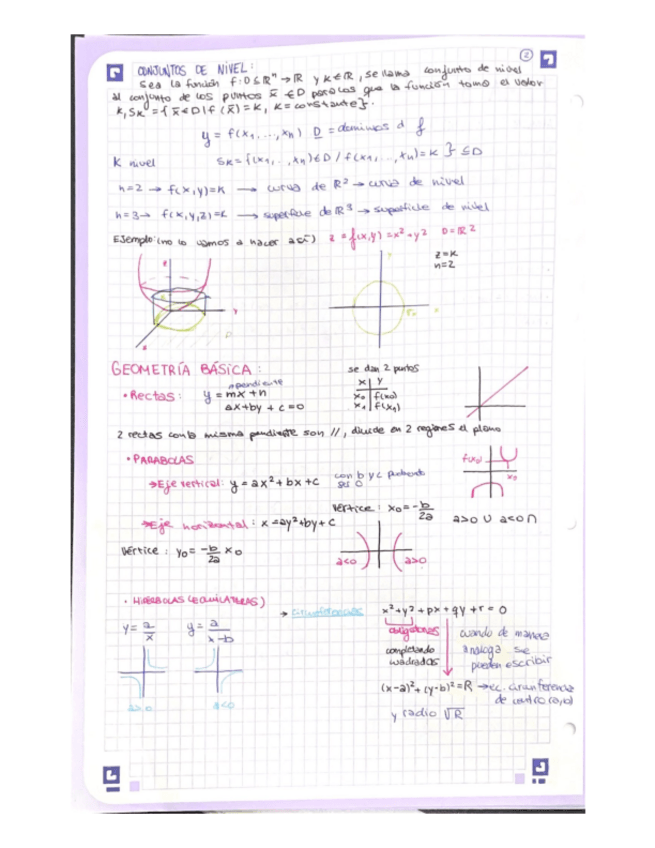 2
CONJUNTOS DE NIVEL:
Sea la función f: D⊆ℝⁿ → ℝ y K∈ℝ, se llama conjunto de nivel
al conjunto de los puntos x̄ ∈D para los que la función toma el valor
K, Sκ = {x̄∈D/ f(x̄)=K, K=constante}.
y = f(x₁,...,xₙ) D = dominios d f
K nivel Sκ={(x₁,...,xₙ)∈D / f(x₁,...,xₙ)=K} ⊆D
n=2 → f(x,y)=K → curva de ℝ² → curva de nivel
n=3 → f(x,y,z)=K → superficie de ℝ³ → superficie de nivel
Ejemplo: (no lo vamos a hacer así) z = f(x,y) = x²+y² D=ℝ²
z=K
n=2
GEOMETRÍA BÁSICA:
se dan 2 puntos
pendiente
• Rectas: y = mx+n
ax+by+c=0
x y
x₀ f(x₀)
x₁ f(x₁)
2 rectas con la misma pendiente son //, divide en 2 regiones el plano
• PARABOLAS
→ Eje vertical: y = ax²+bx+c con b y c pudiendo
ser 0
f(x₀)
x₀
Vértice: x₀=-b/2a a>0 ∪ a<0 ∩
→ Eje horizontal: x=ay²+by+c
Vértice: y₀= -b/2a x₀
a<0 a>0
• HIPÉRBOLAS (EQUILÁTERAS)
y = a/x y = a/x-b
a>0 a<0
→ Circunferencias x²+y²+px+qy+r=0
obligatorios
completando
cuadrados
cuando de manera
análoga se
pueden escribir
(x-a)²+(y-b)²=R → ec. circunferencia
de centro
y radio √R